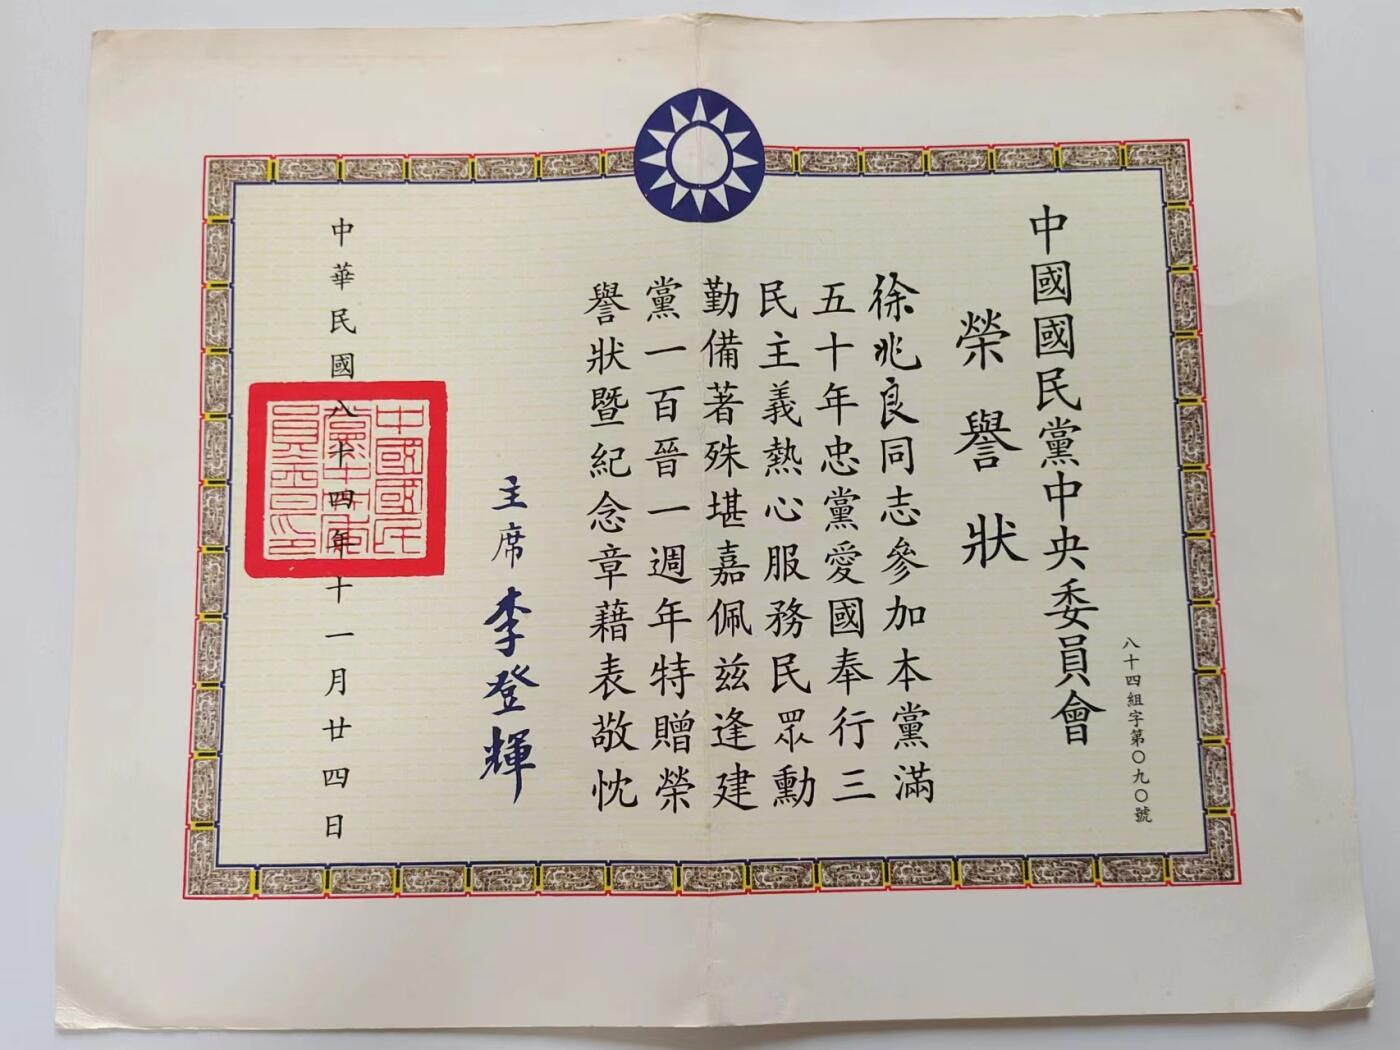 中國國民黨中央委員會
榮譽狀
八十四組字第〇九〇號
徐兆良同志參加本黨滿
五十年忠黨愛國奉行三
民主義熱心服務民眾勳
勤備著殊堪嘉佩茲逢建
黨一百晉一週年特贈榮
譽狀暨紀念章藉表敬忱
主席 李登輝
中華民國八十四年十一月廿四日
中國國民
黨中央委
員會印